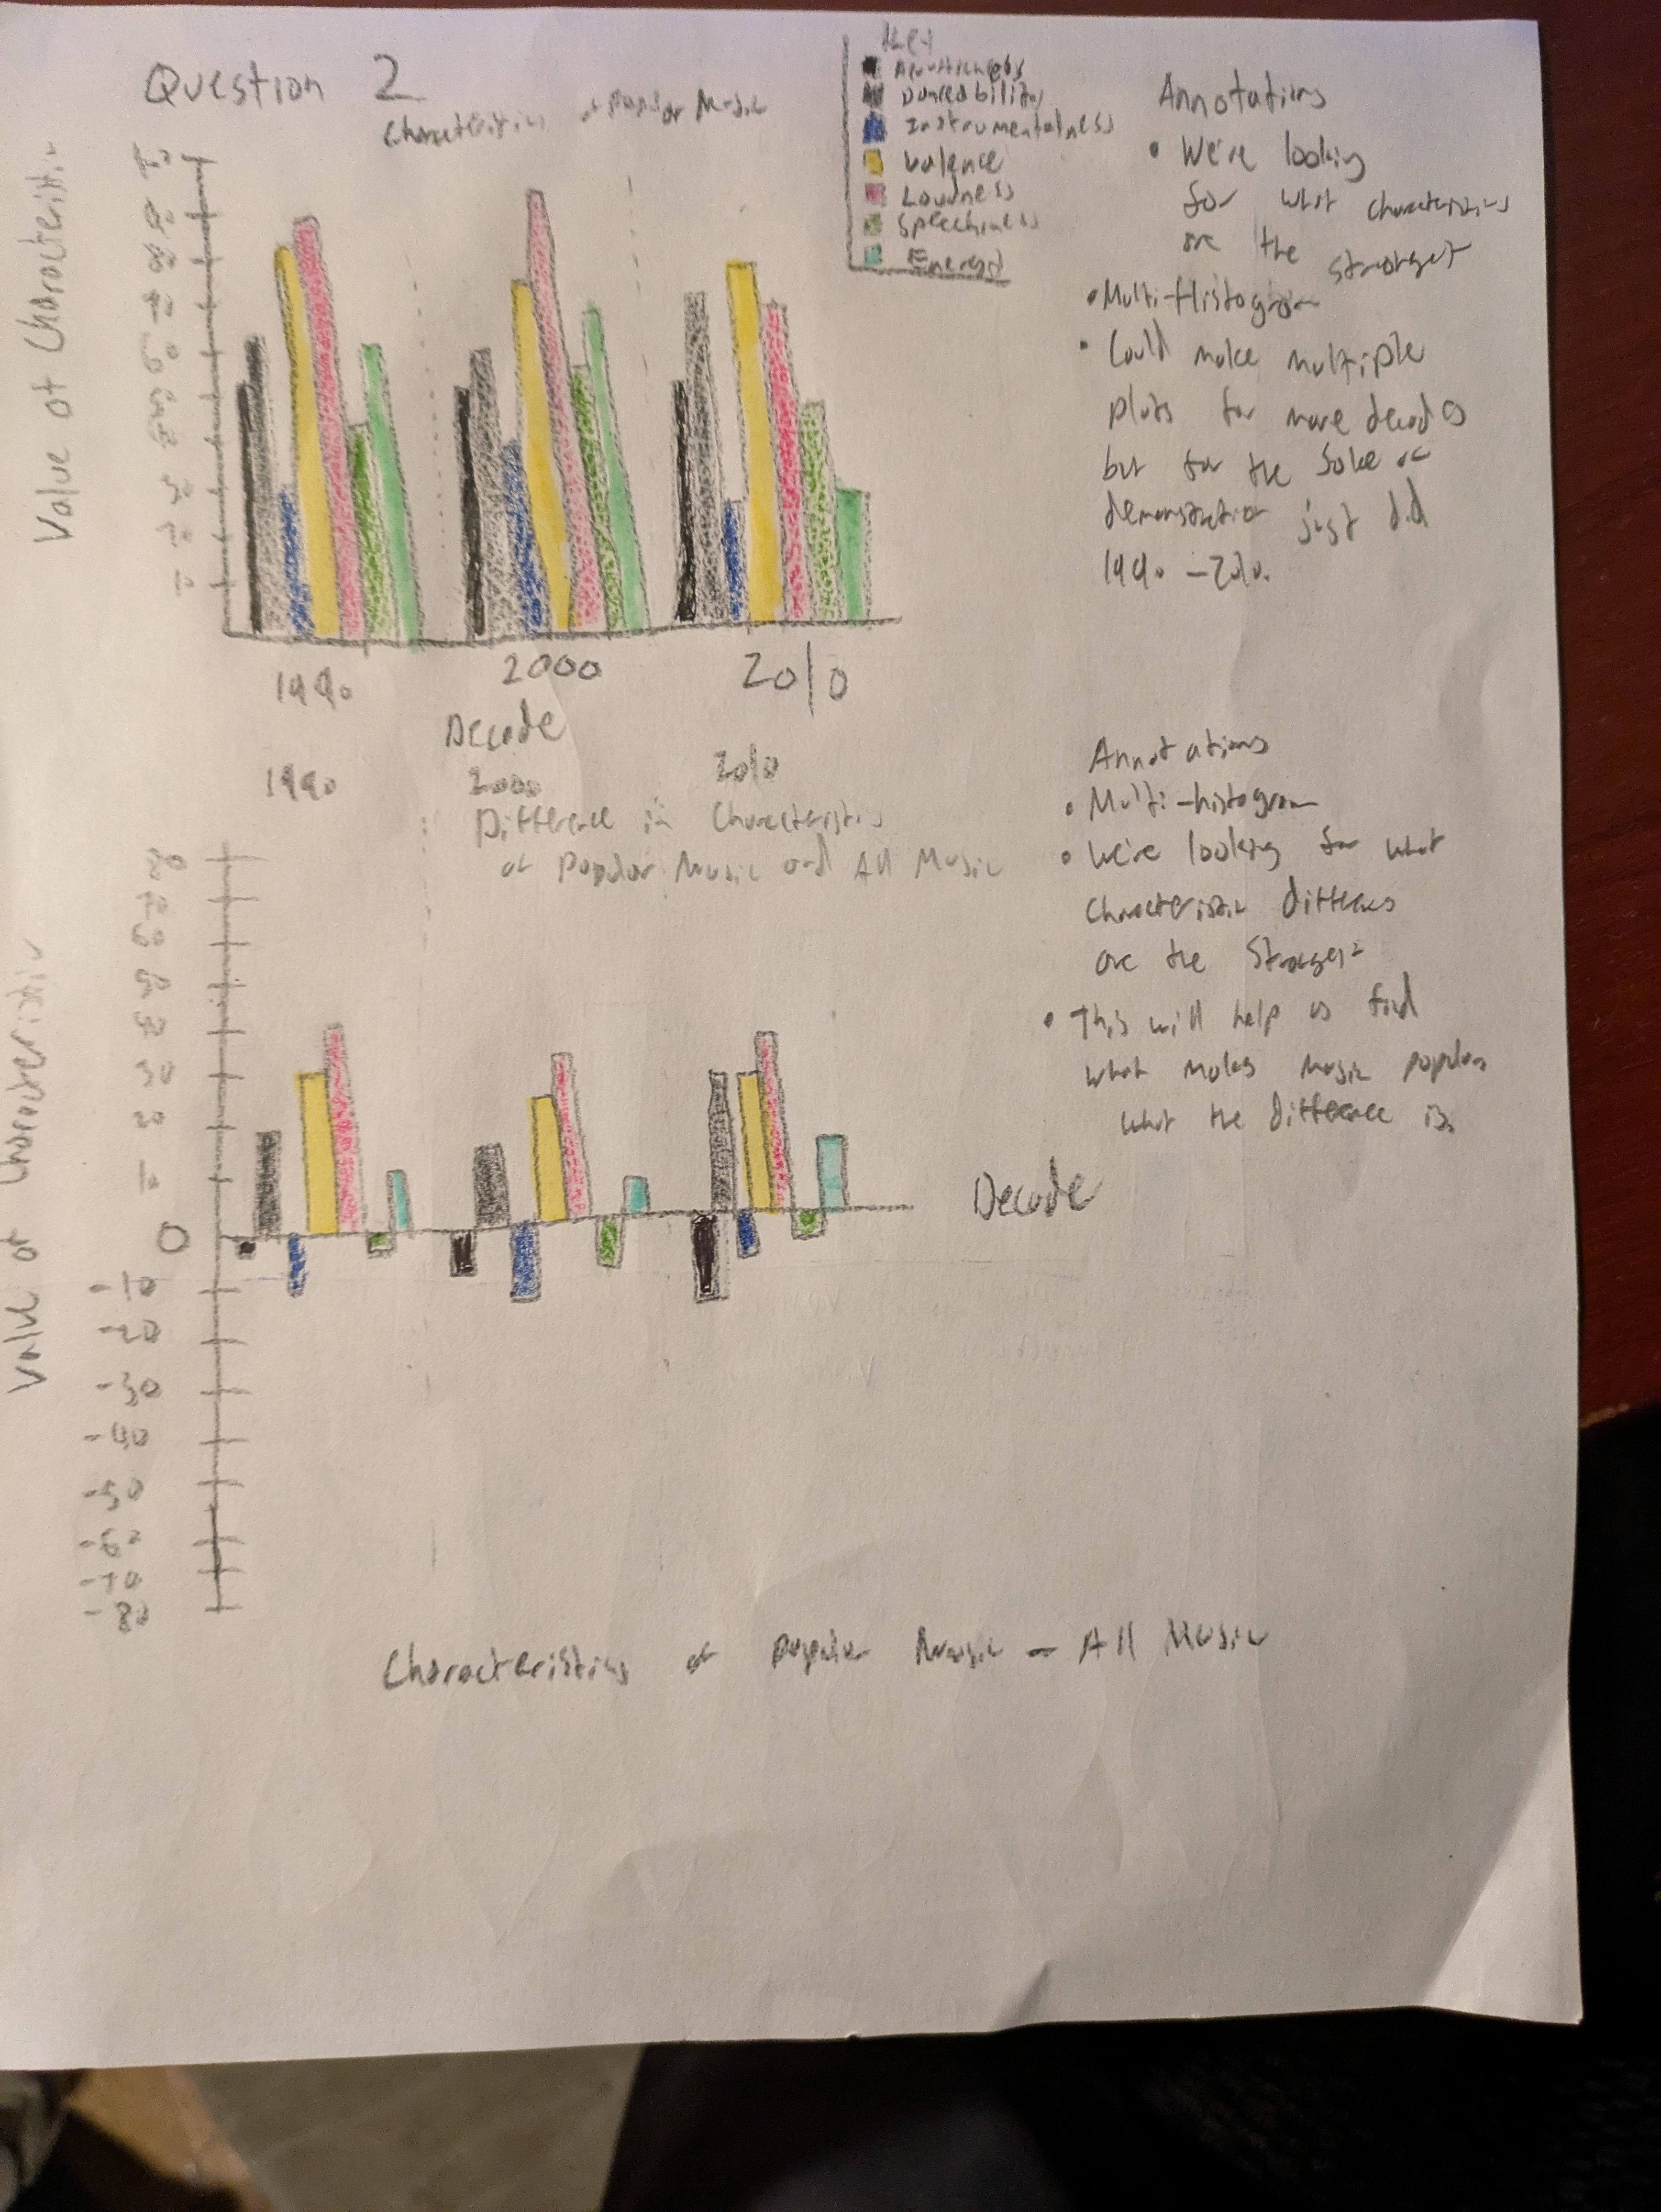 Question 2
Characteristics of Popular Music
Key
Acousticness
Danceability
Instrumentalness
Valence
Loudness
Speechiness
Energy
Value of Characteristic
1990
2000
2010
Decade
Annotations
• We're looking
for what characteristics
are the strongest
• Multi-Histogram
• Could make multiple
plots for more decades
but for the sake of
demonstration just did
1990 - 2010.
1990
2000
2010
Difference in Characteristics
of Popular Music and All Music
Value of Characteristic
0
-10
-20
-30
-40
-50
-60
-70
-80
Decade
Annotations
• Multi-histogram
• We're looking for what
characteristic
are the
• This will help us find
what makes music popular
what the difference is.
Characteristics of Popular Music - All Music